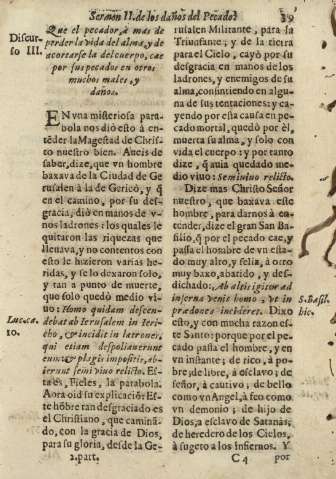 Sermon II. de los daños del Pecado
39
Discurso III.
Que el pecador, à mas de
perder la vida del alma, y de
acortarse la del cuerpo, cae
por sus pecados en otros
muchos males, y
daños.
EN vna misteriosa para-
bola nos diò esto à en-
tẽder la Magestad de Chris-
to nuestro bien. Aueis de
saber, dize, que vn hombre
baxava de la Ciudad de Ge
rusalen à la de Gericò, y q̃
en el camino, por su des-
gracia, diò en manos de v-
nos ladrones: los quales le
quitaron las riquezas que
llenava, y no contentos con
esto le hizieron varias he-
ridas, y se lo dexaron solo,
y tan a punto de muerte,
que solo quedò medio vi-
uo: Homo quidam descen-
debat ab Ierusalem in Ieri-
cho, & incidit in latrones,
qui etiam despoliauerunt
eum: & plagis impositis, ab-
ierunt semi viuo relicto. Es-
ta es, Fieles, la parabola.
Aora oid su explicaciõ: Es-
te hõbre tan desgraciado es
el Christiano, que caminã-
do, con la gracia de Dios,
para su gloria, desde la Ge-
2. part.
Luc. ca.
10.
rusalen Militante, para la
Triunfante; y de la tierra
para el Cielo, cayò por su
desgracia en manos de los
ladrones, y enemigos de su
alma, consintiendo en algu-
na de sus tentaciones: y ca-
yendo por esta causa en pe-
cado mortal, quedò por èl,
muerta su alma, y solo con
vida el cuerpo: y por tanto
dize, q̃ auia quedado me-
dio viuo: Semiuiuo relicto.
Dize mas Christo Señor
nuestro, que baxava este
hombre, para darnos à en-
tender, dize el gran San Ba-
silio, q̃ por el pecado cae, y
passa el hombre de vn esta-
do muy alto, y feliz, à otro
muy baxo, abatido, y des-
dichado: Ab altis igitur ad
inferna venit homo, vt in
prædones incideret. Dixo
esto, y con mucha razon es-
te Santo: porque por el pe-
cado passa el hombre, y en
vn instante; de rico, à po-
bre; de libre, à esclavo; de
señor, à cautivo; de bello
como vn Angel, à feo como
vn demonio; de hijo de
Dios, a esclavo de Satanàs;
de heredero de los Cielos,
à sugeto a los infiernos. Y
S. Basil.
hic.
C 4
por